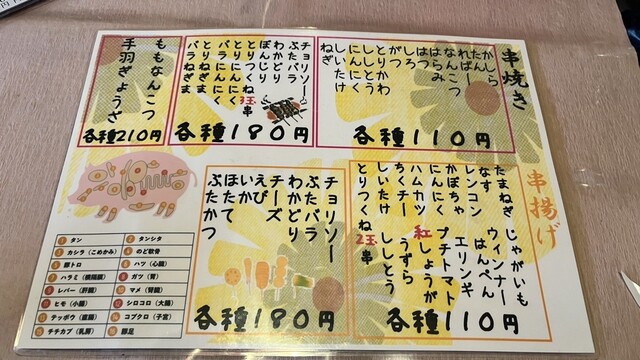 串焼き
かしら
たん
ればー
なんこつ
はらみ
はつ
しろ
がつ
とりかわ
ししとう
にんにく
しいたけ
ねぎ
各種110円
チョリソー
ぶたバラ
わかどり
ぼんじり
とりつくね3玉串
とりにんにく
バラにんにく
とりねぎま
バラねぎま
各種180円
ももなんこつ
手羽ぎょうざ
各種210円
串揚げ
たまねぎ じゃがいも
なす ウィンナー
レンコン はんぺん
かぼちゃ エリンギ
にんにく プチトマト
ハムカツ 紅しょうが
ちくチー うずら
しいたけ ししとう
とりつくね2玉串
各種110円
チョリソー
ぶたバラ
わかどり
チーズ
えび
いか
ほたて
ぶたかつ
各種180円
タン タンシタ
カシラ（こめかみ） のど軟骨
豚トロ ハツ（心臓）
ハラミ（横隔膜） ガツ（胃）
レバー（肝臓） マメ（腎臓）
ヒモ（小腸） シロコロ（大腸）
テッポウ（直腸） コブクロ（子宮）
チチカブ（乳房） 豚足